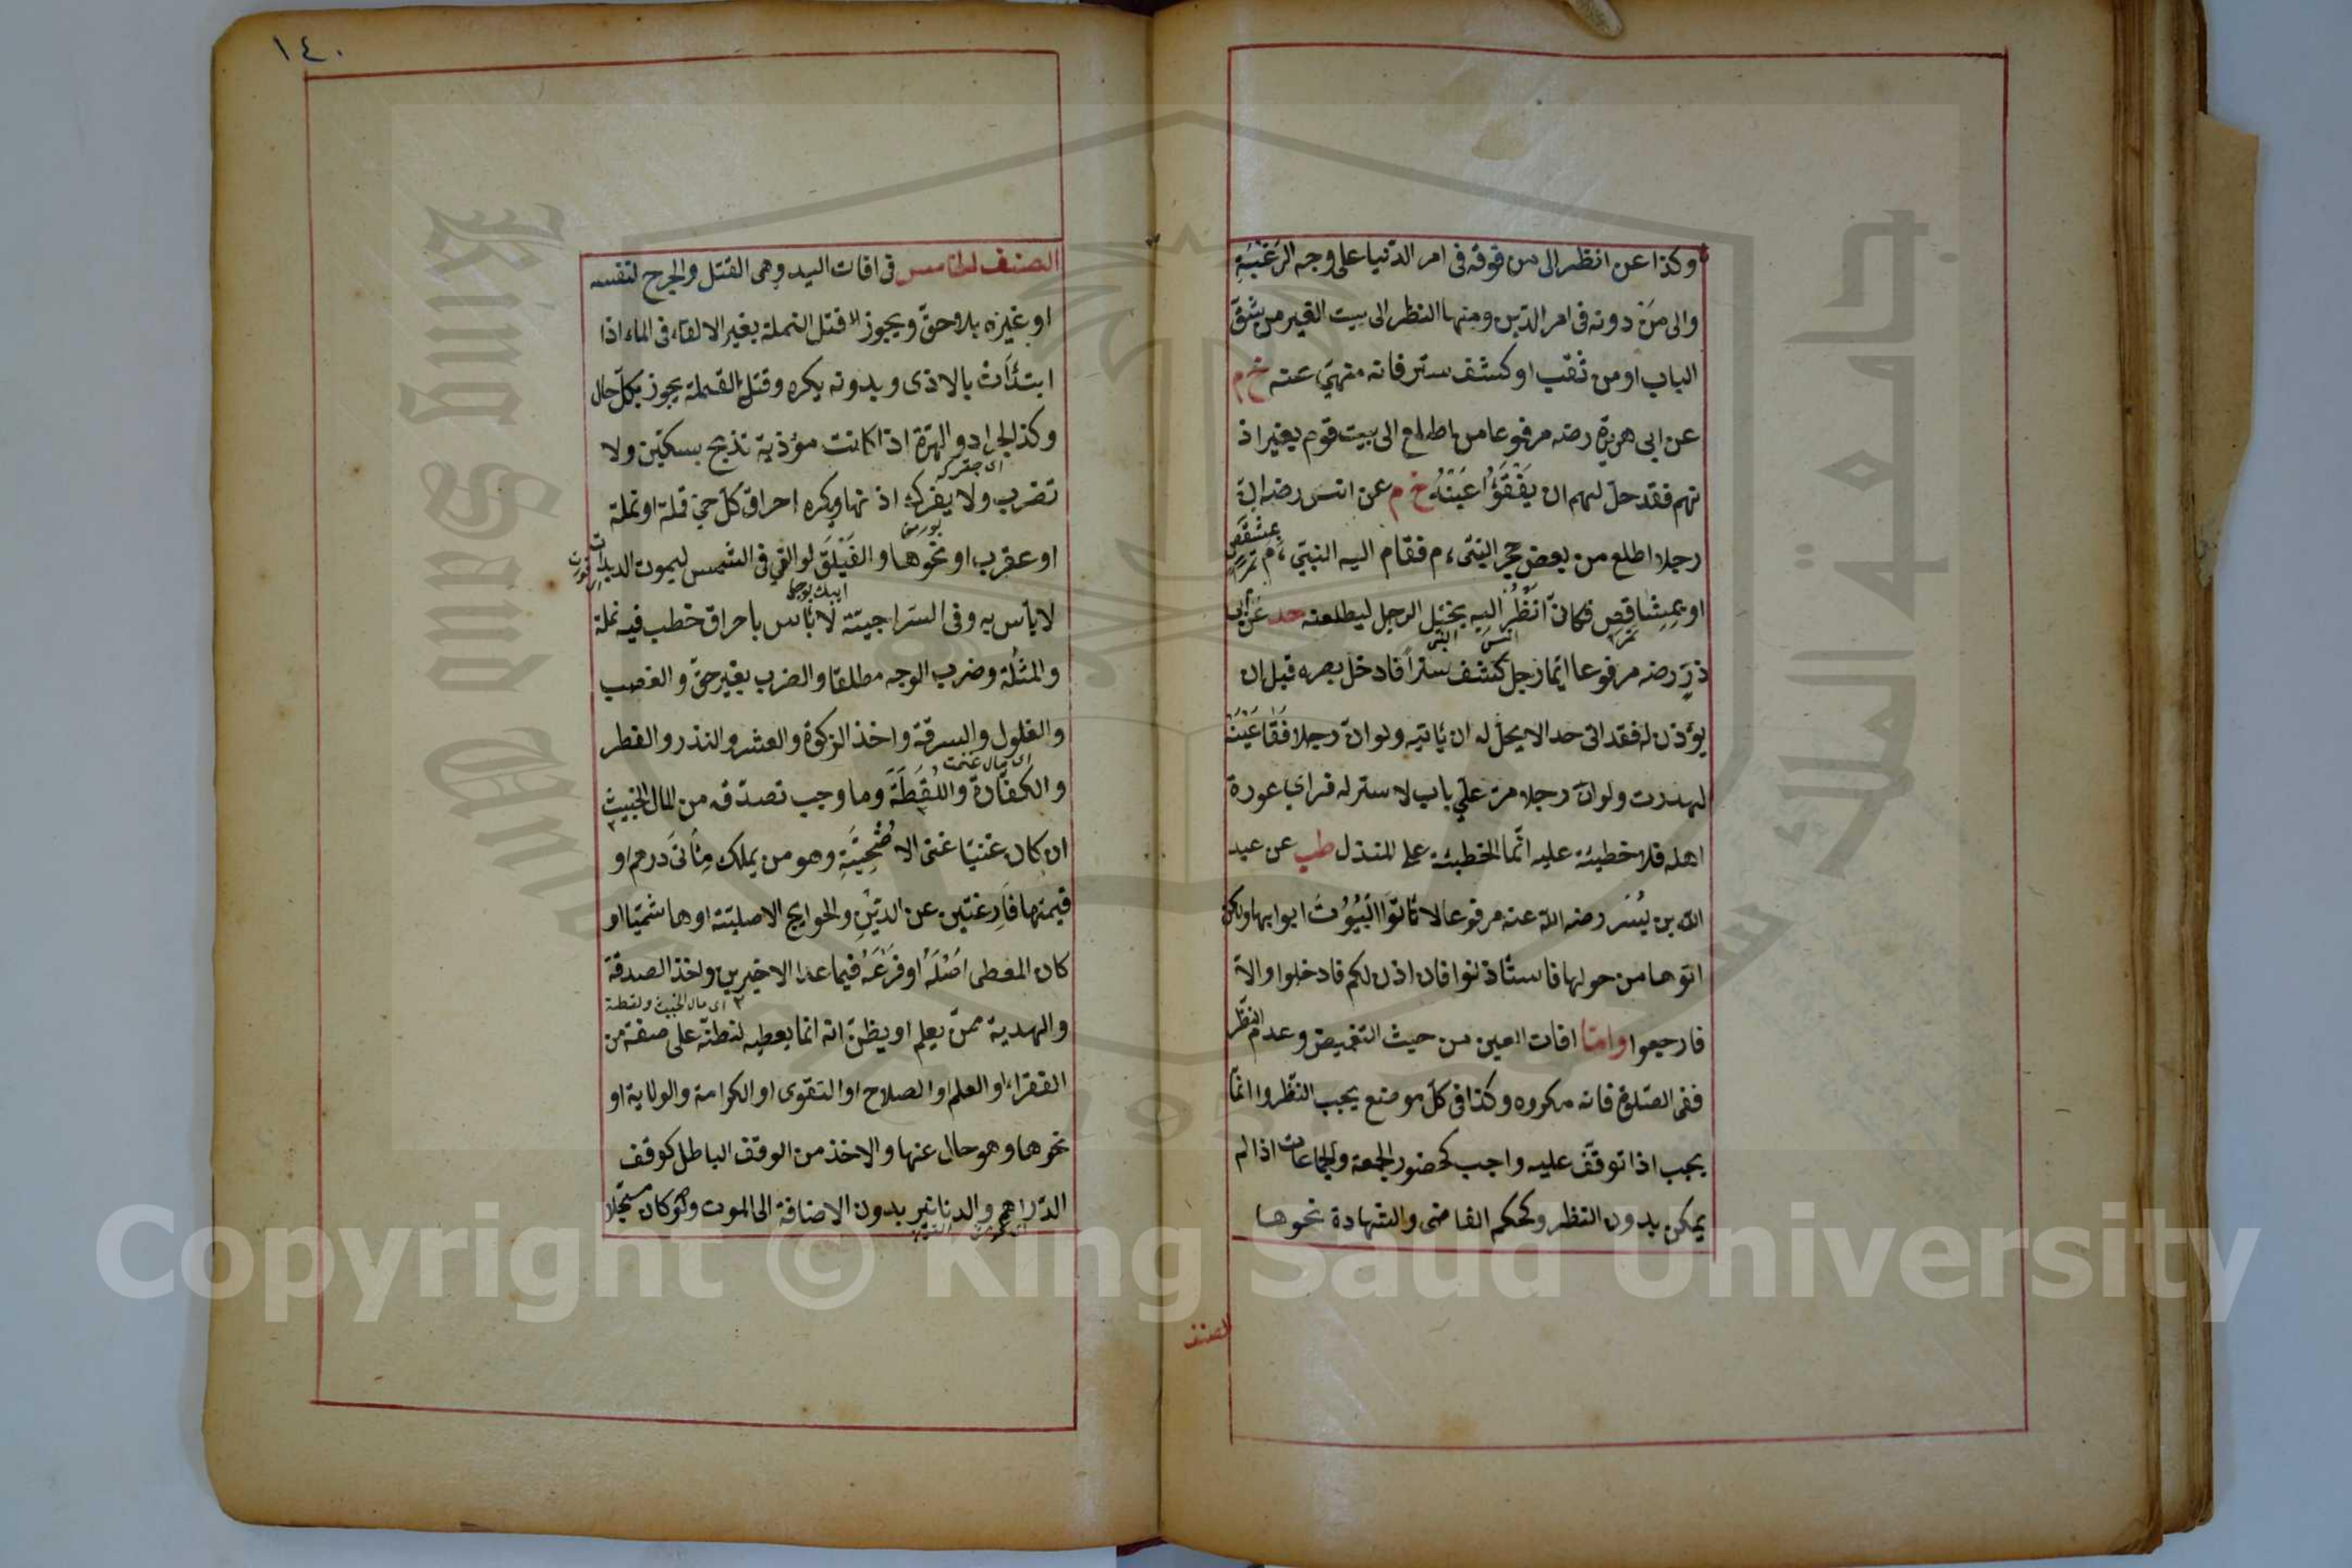 وكذا عن انظر الى من فوقه فى امر الدنيا على وجه الرغبة
والى من دونه فى امر الدين ومنها النظر الى بيت الغير من شق
الباب او من ثقب او كشف ستر فانه منهى عنه خ م
عن ابى هريرة رضه مرفوعا من اطلع الى بيت قوم بغير اذ
نهم فقد حل لهم ان يفقؤا عينه خ م عن انس رضه ان
رجلا اطلع من بعض حجر النبى ء م فقام اليه النبى ء م بمشقص
او بمشاقص فكان انظر اليه يختل الرجل ليطعنه حد عن ابى
ذر رضه مرفوعا ايما رجل كشف سترا فادخل بصره قبل ان
يؤذن له فقد اتى حدا لا يحل له ان ياتيه ولو ان رجلا فقأ عينه
لهدرت ولو ان رجلا مر على باب لا ستر له فراى عورة
اهله فلا خطيئة عليه انما الخطيئة على المنزل طب عن عبد
الله بن يسر رضه الله عنه مرفوعا لا تاتوا البيوت ابوابها ولكن
اتوها من حولها فاستأذنوا فان اذن لكم فادخلوا والا
فارجعوا واما افات العين من حيث التغميض وعدم النظر
ففى الصلوة فانه مكروه وكذا فى كل موضع يجب النظر وانما
يجب اذا توقف عليه واجب كحضور الجمعة والجماعات اذا لم
يمكن بدون النظر وكحكم القاضى والشهادة نحوها
الصنف
١٤٠
الصنف الخامس فى افات اليد وهى القتل والجرح لنفسه
او غيره بلا حق ويجوز قتل النملة بغير الالقاء فى الماء اذا
ابتدأت بالاذى وبدونه يكره وقتل القملة يجوز بكل حال
وكذا الجراد والهرة اذا كانت مؤذية تذبح بسكين ولا
تضرب ولا يفرك اذنها ويكره احراق كل حى قملة او نملة
او عقرب او نحوها والفيلق لو القى فى الشمس ليموت الديدان
لا باس به وفى السراجية لا باس باحراق حطب فيه نملة
والمثلة وضرب الوجه مطلقا والضرب بغير حق والغصب
والغلول والسرقة واخذ الزكوة والعشر والنذر والفطر
والكفارة واللقطة وما وجب تصدقه من المال الخبيث
ان كان غنيا غنى الاضحية وهو من يملك مأتى درهم او
قيمتها فارغتين عن الدين والحوايج الاصلية او هاشميا او
كان المعطى اصله او فرعه فيما عدا الاخيرين واخذ الصدقة
٢ اى مال الخبيث ولقطة
والهدية ممن يعلم او يظن انه انما يعطيه لظنه على صفة من
الفقراء او العلم او الصلاح او التقوى او الكرامة والولاية او
نحوها وهو خال عنها والاخذ من الوقف الباطل كوقف
الدراهم والدنانير بدون الاضافة الى الموت ولو كان مسجلا
Copyright © King Saud University
King Saud University
جامعة الملك سعود